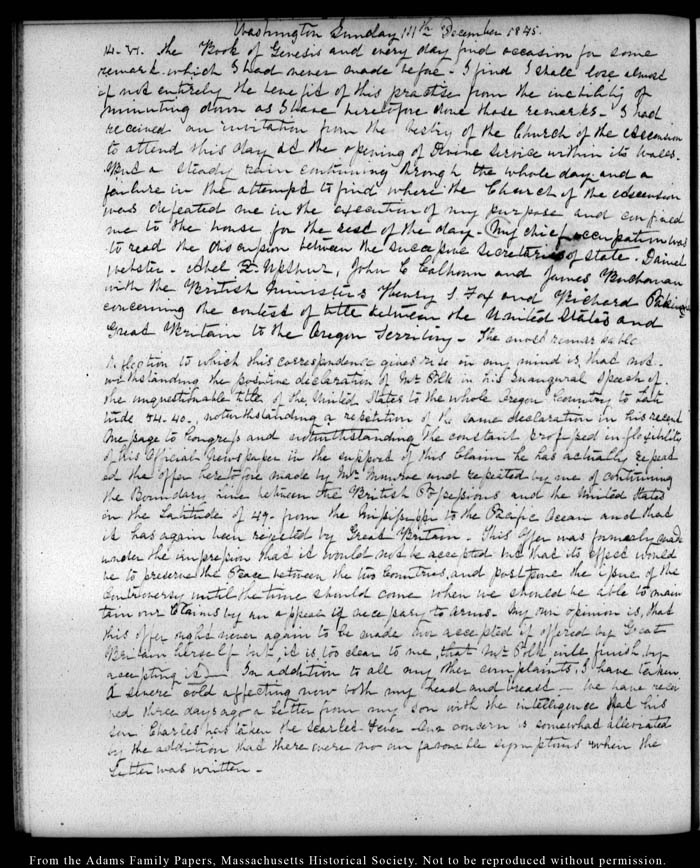 Washington Sunday 14th December 1845.
14. VI. the Book of Genesis and every day find occasion for some
remark which I had never made before - I find I shall lose almost
if not entirely the benefit of this practise from the inability of
minuting down as I have heretofore done those remarks - I had
received an invitation from the Vestry of the Church of the Ascension
to attend this day at the opening of Divine service within its walls.
But a steady rain continuing through the whole day and a
failure in the attempt to find where the Church of the Ascension
was defeated me in the execution of my purpose and confined
me to the house for the rest of the day. My chief occupation was
to read the discussion between the successive Secretaries of State - Daniel
Webster - Abel P. Upshur, John C Calhoun and James Buchanan
with the British Ministers Henry S. Fox and Richard Pakingham
concerning the contest of title between the United States and
Great Britain to the Oregon Territory - The most remarkable
reflection to which this correspondence gives rise in my mind is, that not-
withstanding the positive declaration of Mr Polk in his Inaugural Speech of
the unquestionable title of the United States to the whole Oregon Country to Lati
tude 54.40., notwithstanding a repetition of the same declaration in his recent
Message to Congress and notwithstanding the constant professed inflexibility
of his Official Newspaper in the support of this Claim he has actually repeat
ed the offer heretofore made by Mr. Munroe and repeated by me of continuing
the Boundary line between the British Possessions and the United States
in the Latitude of 49. from the Mississippi to the Pacific Ocean and that
it has again been rejected by Great Britain. This Offer was formerly made
under the impression that it would not be accepted but that its effect would
be to preserve the Peace between the two Countries, and postpone the issue of the
Controversy until the time should come when we should be able to main
tain our Claims by an appeal if necessary to arms. My own opinion is, that
this offer ought never again to be made nor accepted if offered by Great
Britain herself but, it is, too clear to me, that Mr Polk will finish by
accepting it) - In addition to all my other complaints, I have taken
A severe cold affecting now both my head and breast - We have recei
ved three days ago a Letter from my son with the intelligence that his
son Charles has taken the Scarlet Fever - Our concern is somewhat alleviated
by the addition that there were no unfavorable symptoms when the
Letter was written -
From the Adams Family Papers, Massachusetts Historical Society. Not to be reproduced without permission.